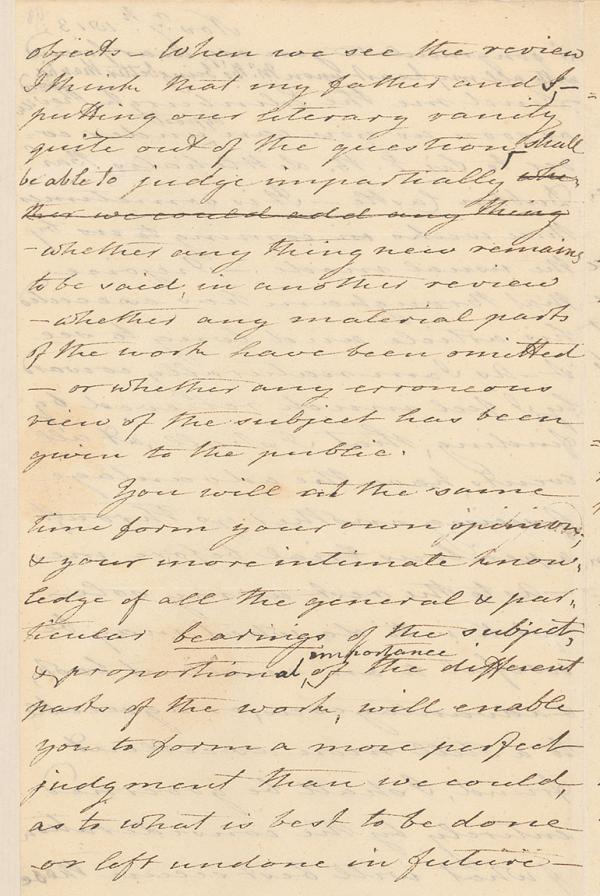 objects – When we see the review
I think that my father and I –
putting our literary vanity
quite out of the question, shall
be able to judge impartially whe-
ther we could add any thing
– whether any thing new remains
to be said, in another review
– whether any material parts
of the work have been omitted
– or whether any erroneous
view of the subject has been
given to the public.
You will at the same
time form your own opinion;
& your more intimate know-
ledge of all the general & par-
ticular bearings of the subject,
importance
& proportional, of the different
parts of the work, will enable
you to form a more perfect
judgment than we could,
as to what is best to be done
or left undone in future –